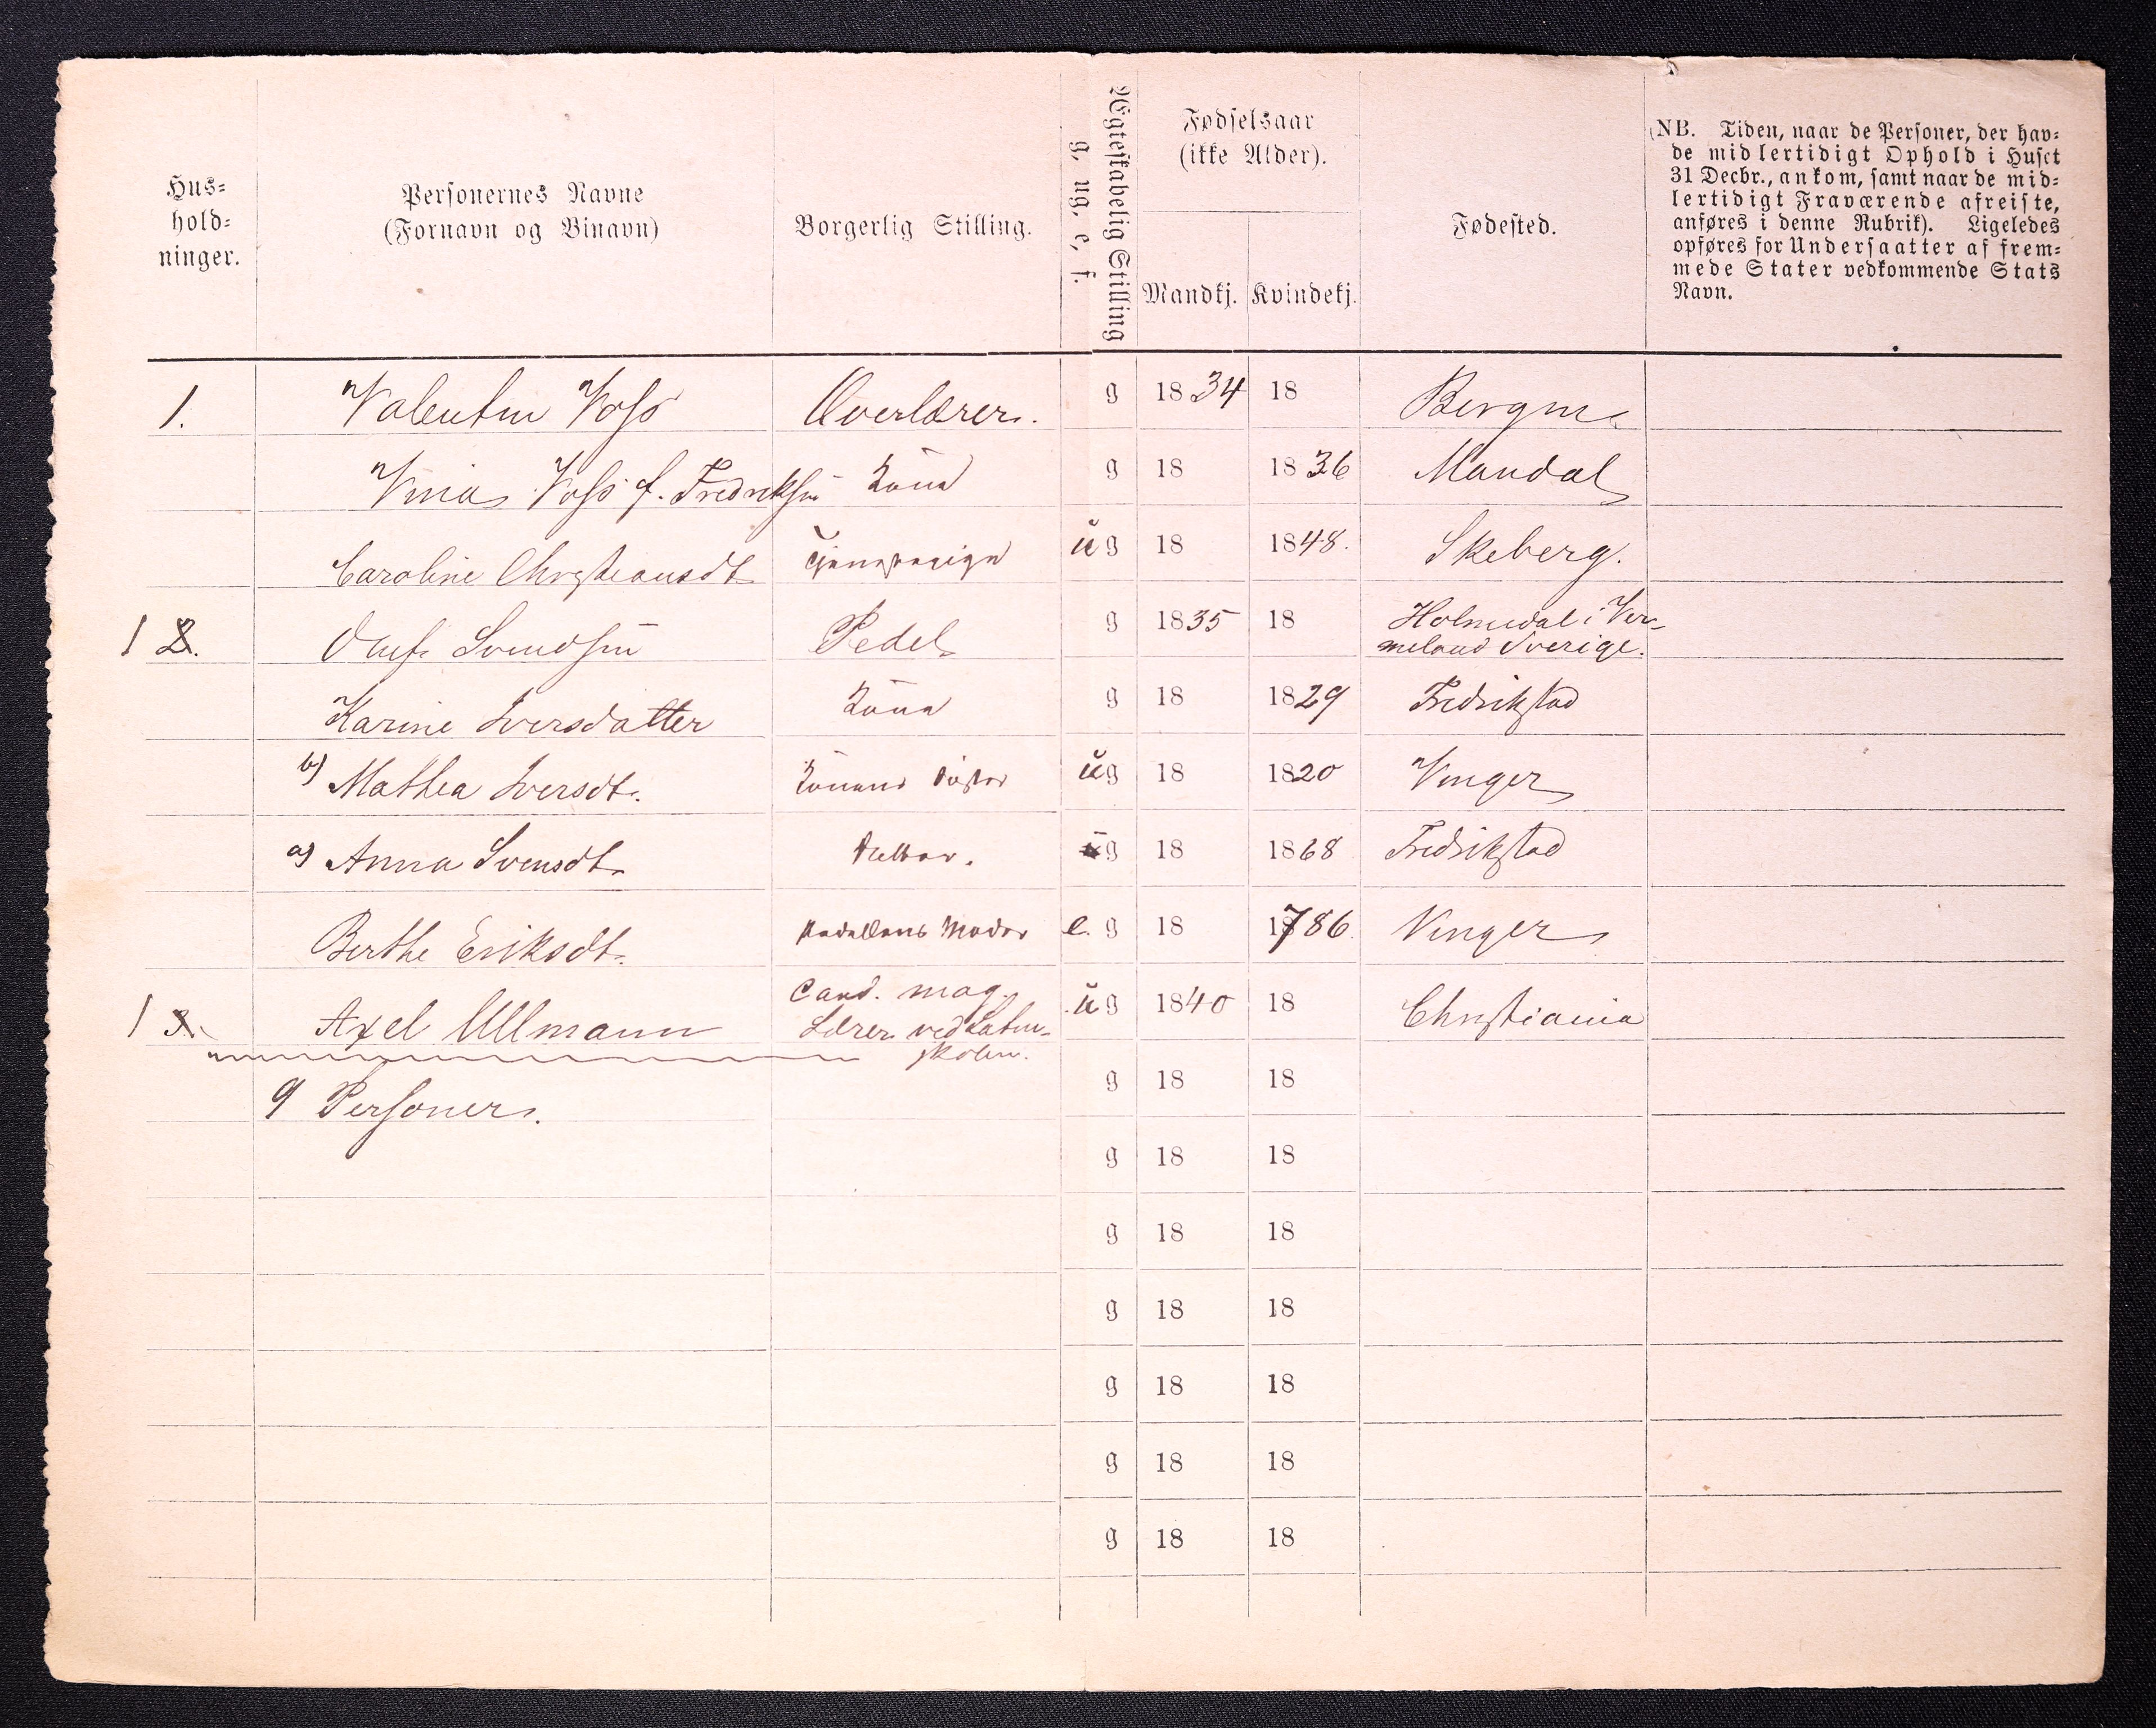 Hus-
hold-
ninger.
Personernes Navne
(Fornavn og Binavn)
Borgerlig Stilling.
Ægteskabelig Stilling
g, ug, e, f.
Fødselsaar
(ikke Alder).
Mandkj. Kvindekj.
Fødested.
(NB. Tiden, naar de Personer, der hav-
de midlertidigt Ophold i Huset
31 Decbr., ankom, samt naar de mid-
lertidigt Fraværende afreiste,
anføres i denne Rubrik). Ligeledes
opføres for Undersaatter af frem-
mede Stater vedkommende Stats
Navn.
1. Valentin Voss Overlærer. g 1834 18 Bergen
Voss f. Fredriksen Kone g 18 1836 Mandal
Caroline Christiansdt Tjenestepige ug 18 1848. Skeberg.
1 2. Oluf Svendsen Pedel g 1835 18 Holmedal i Ver-
meland Sverige.
Karine Iversdatter Kone g 18 1829 Fredrikstad
b) Mathea Iversdt. Konens Søster ug 18 1820 Vinger
a) Anna Svensdt. Datter. ug 18 1868 Fredrikstad
Berthe Eriksdt. Pedellens Moder e. g 18 1786 Vinger
1 3. Axel Ullmann Cand. mag. ug 1840 18 Christiania
Lærer ved Latin-
skolen.
9 Personer.
g 18 18
g 18 18
g 18 18
g 18 18
g 18 18
g 18 18
g 18 18